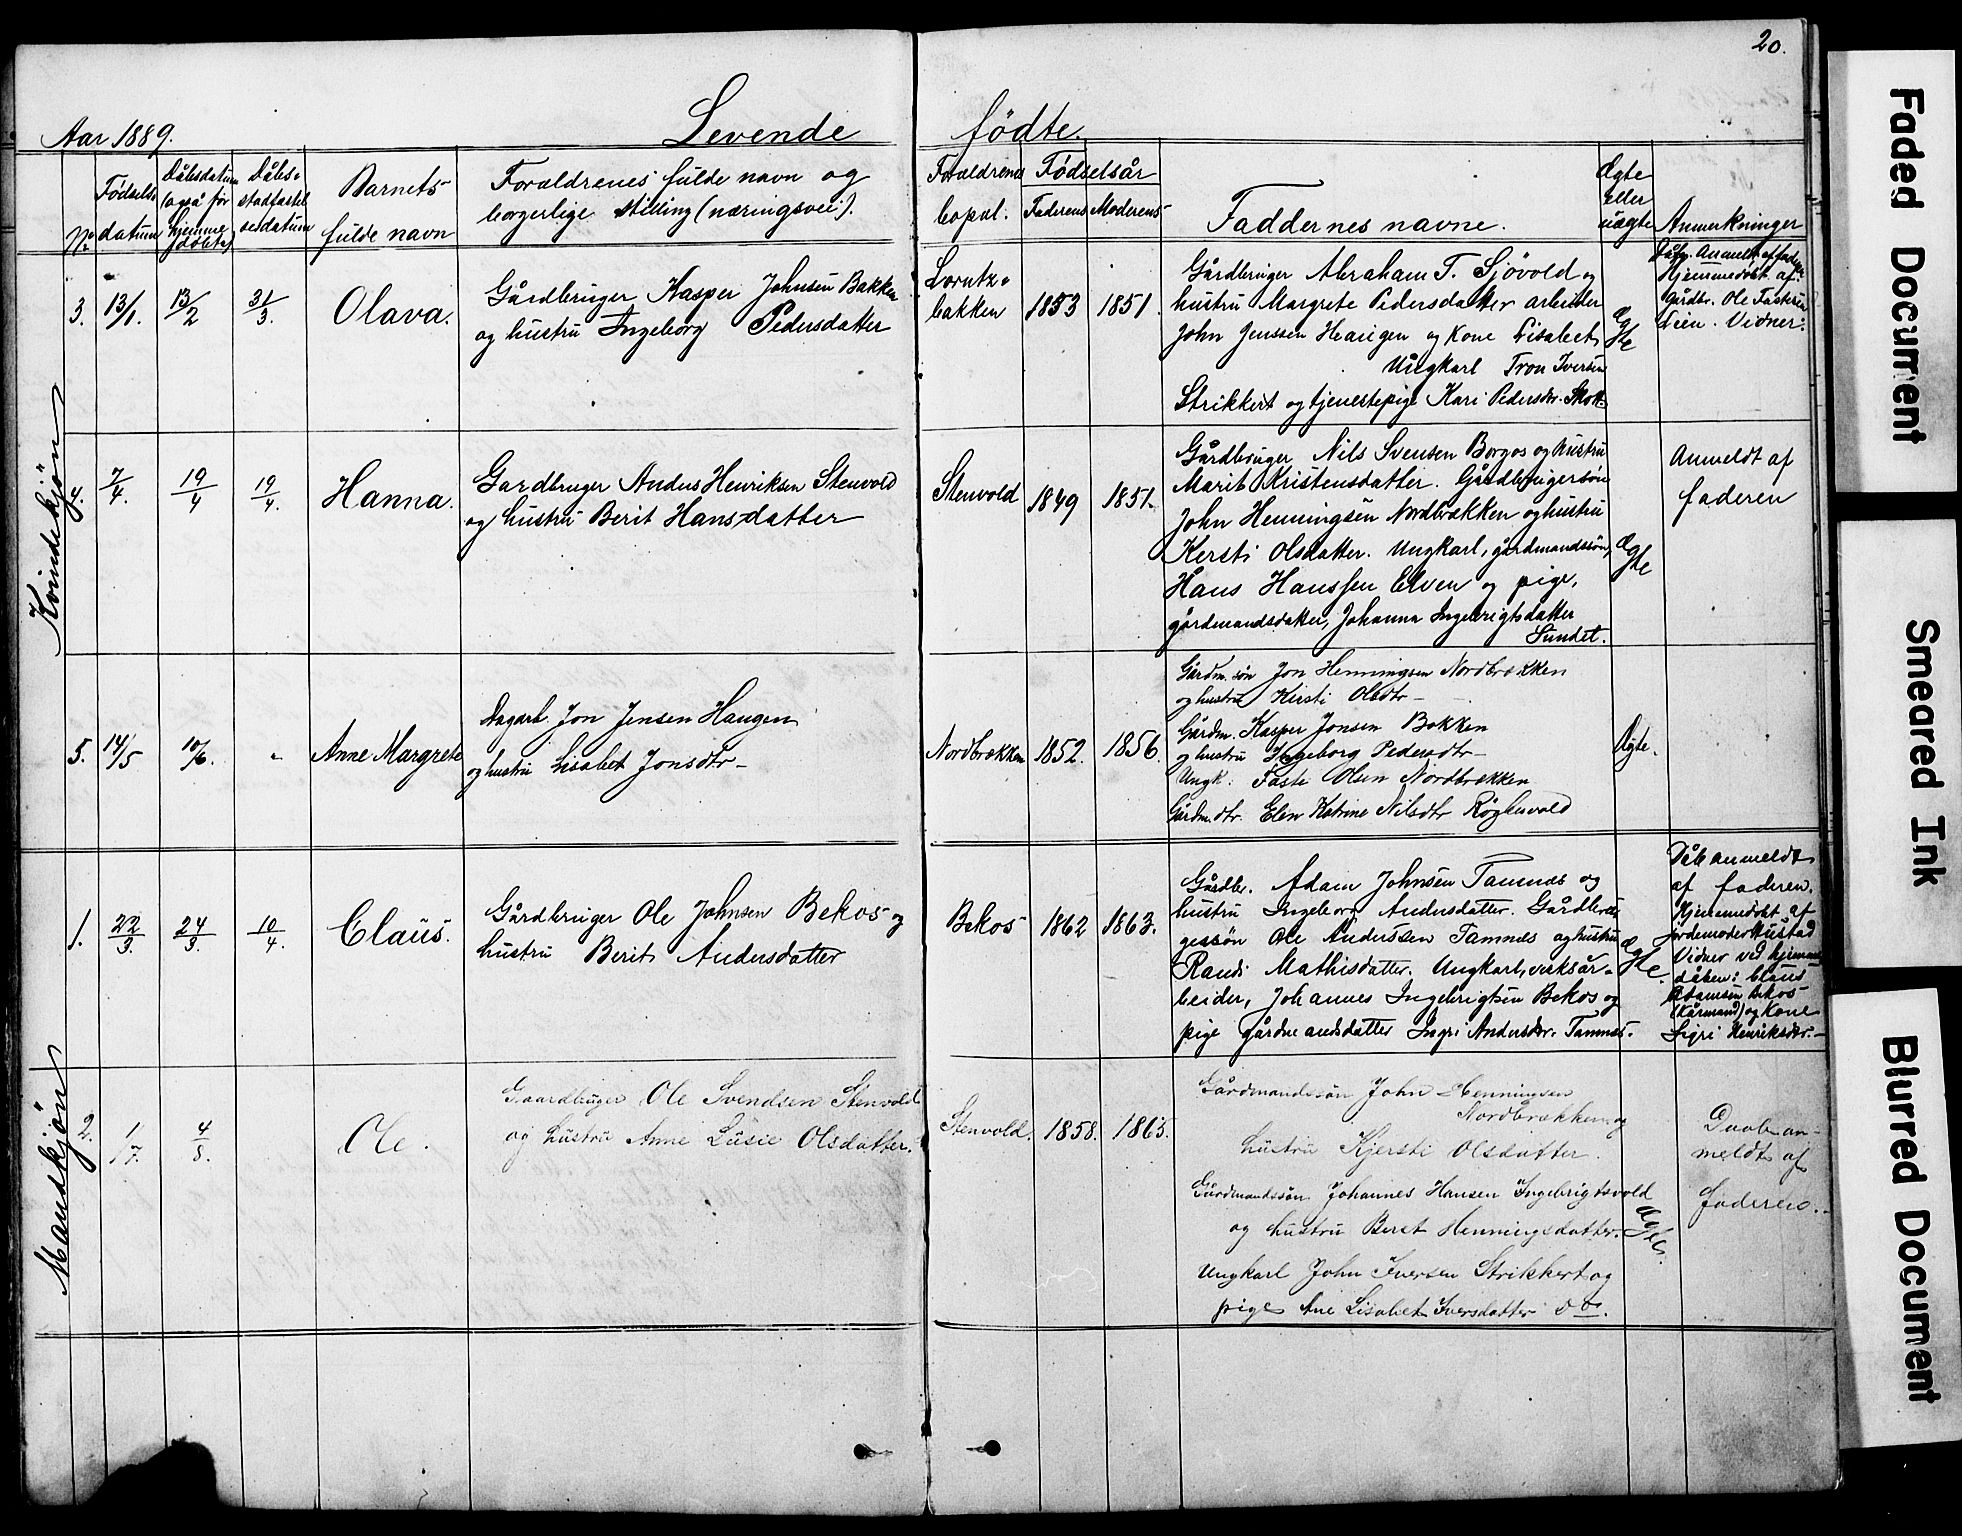 20.
Aar 1889.
Levende fødte.
No
Fødsels-
datum
Dåbsdatum
(også for
hjemme
døbte)
Dåbs-
stadfæstel
sesdatum
Barnets
fulde navn
Forældrenes fulde navn og
borgerlige stilling (næringsvei).
Forældrenes
bopæl.
Fødselsår
Faderens
Moderens
Faddernes navne.
Ægte
eller
uægte
Anmerkninger
Kvindekjøn
3.
13/1.
13/2
31/3.
Olava.
Gårdbruger Kasper Johnsen Bakken
og hustru Ingeborg Pedersdatter
Lorntz-
bakken
1853
1851.
Gårdbruger Abraham T. Sjövold og
hustru Margrete Pedersdatter arbeider
John Jenssen Heaugen og kone Lisabet
Ungkarl Tron Iversen
Strikkert og tjenestepige Kari Pedersdr. Skott
Ægte
Dåb. Anmeldt af fader
Hjemmedøbt af
gårdbr. Ole Fastesen
Lien. Vidner:
4.
7/4.
19/4
19/4.
Hanna.
Gardbruger Anders Henriksen Stenvold
og hustru Berit Hansdatter
Stenvold
1849
1851.
Gårdbruger Nils Svensen Borgos og hustru
Marit Kristensdatter. Gårdbrugersøn
John Henningsen Nordbrækken og hustru
Kersti Olsdatter. Ungkarl, gårdmandssøn,
Hans Hanssen Elven og pige,
gårdmandsdatter, Johanna Ingebrigtsdatter
Sundet.
Ægte
Anmeldt af
faderen
5.
14/5
10/6.
-
Anne Margrete
Dagarb. Jon Jensen Haugen
og hustru Lisabet Jonsdtr
Nordbrækken
1852.
1856.
Gårdm. søn Jon Henningsen Nordbrækken
og hustru Kirsti Olsdtr
Gårdm. Kasper Jonsen Bakken
og hustru Ingeborg Pedersdtr
Ungk. Faste Olsen Nordbrækken
Gårdm.dtr. Elen Katrine Nilsdtr
Ægte.
Mandkjøn
1.
22/3.
24/3.
10/4.
Claus.
Gårdbruger Ole Johnsen Bekos og
hustru Berit Andersdatter
Bekos
1862
1863.
Gårdbr. Adam Johnsen Tamnes og
hustru Ingeborg Andersdatter. Gårdbru-
gessøn Ole Anderssen Tamnes og hustru
Randi Mathisdatter. Ungkarl, verksar-
beider, Johannes Ingebrigtsen Bekos og
pige gårdmandsdatter Ingri Andersdr. Tamnes.
Ægte.
Dåb anmeldt
af faderen.
Hjemmedøbt af
jordemoder Hustad
Vidner ved hjemme
dåben: Claus
Adamsen Bekos
(Kårmand) og Kone
Sigri Henriksdtr.
2.
1/7.
4/8.
Ole.
Gaardbruger Ole Svendsen Stenvold
og hustru Anne Lusie Olsdatter.
Stenvold.
1858.
1865.
Gårdmandssøn John Henningsen
Nordbrækken og
hustru Kjersti Olsdatter.
Gårdmandssøn Johannes Hansen Ingebrigtsvold
og hustru Beret Henningsdatter.
Ungkarl John Iversen Strikkert og
pige Ane Lisabet Iversdatter do.
Ægte.
Daab an-
meldt af
faderen.
Faded Document
Smeared Ink
Blurred Document